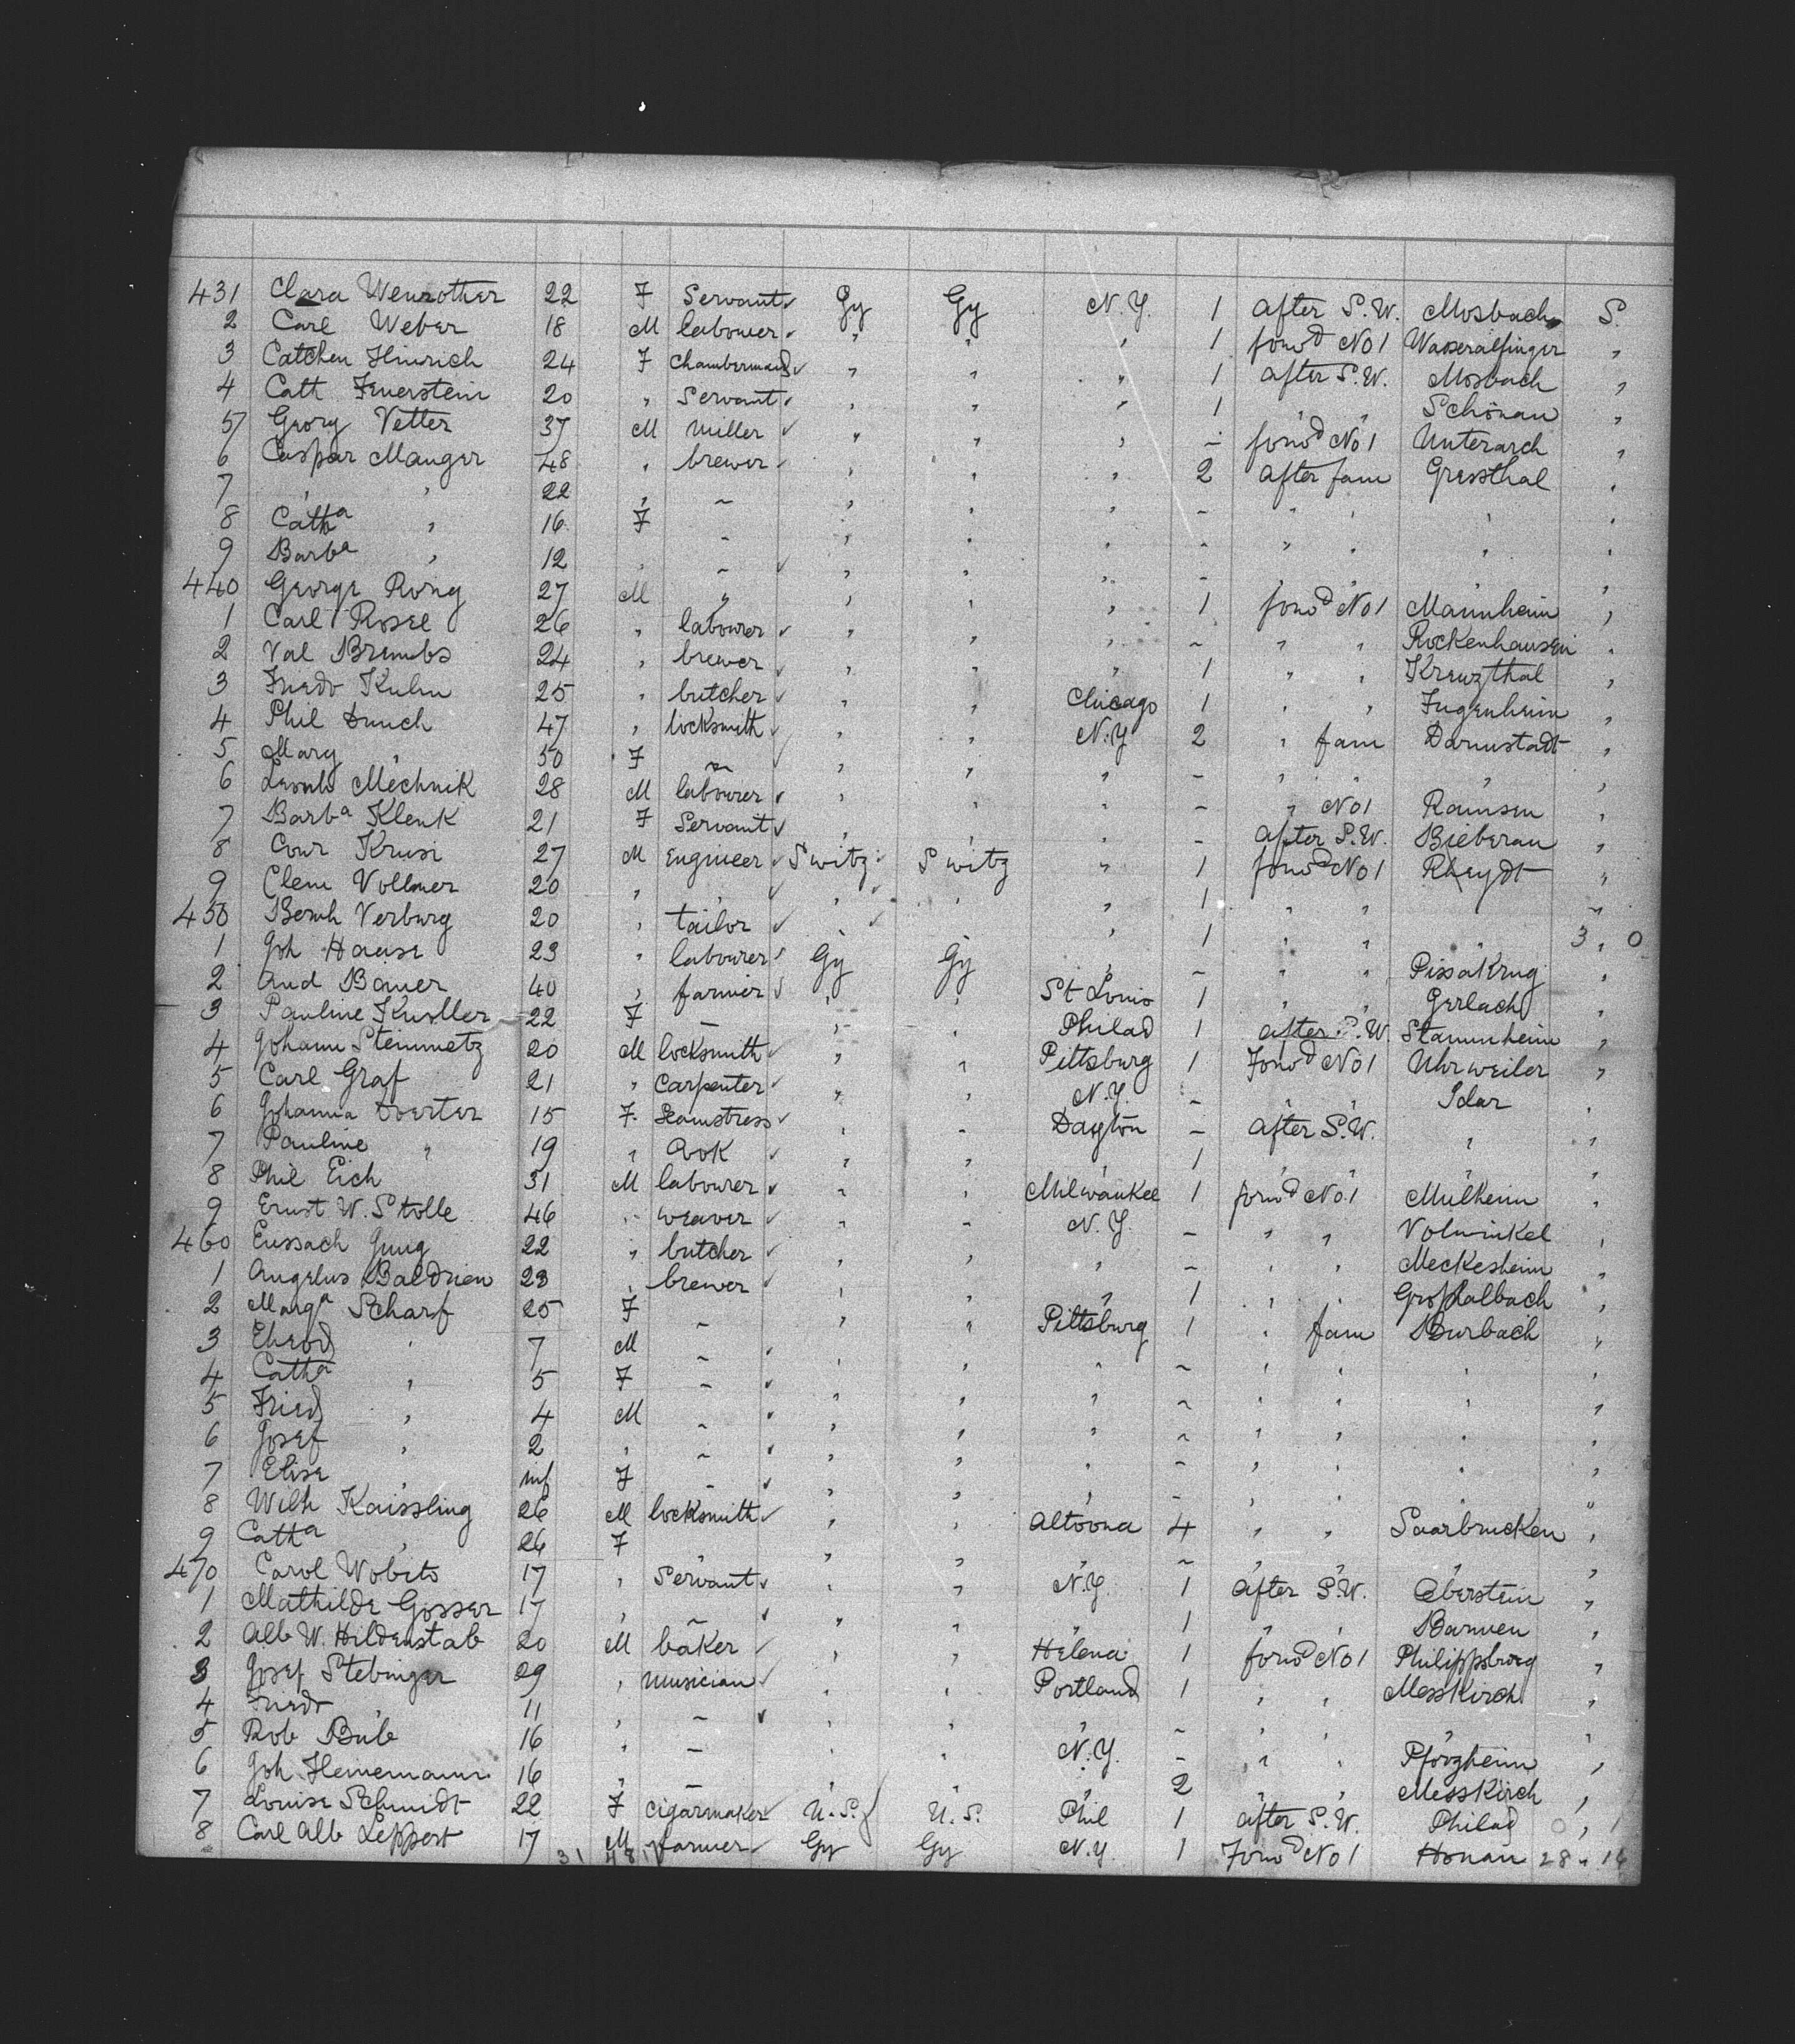 431 Clara Wenrother 22 F Servant Gy Gy N.Y. 1 after S.W. Mosbach S.
2 Carl Weber 18 M labourer " " " 1 forwd No 1 Wasseralfinger "
3 Catchen Hinrich 24 F Chambermaid " " " 1 after S.W. Mosbach "
4 Cath Feuerstein 20 " Servant " " " 1 " " Schönau "
5 Georg Vetter 37 M Miller " " " - forwd No 1 Unterarch "
6 Caspar Manger 48 " brewer " " " 2 after fam Gressthal "
7 " " 22 " - " " " - " " " "
8 Catha " 16 F - " " " - " " " "
9 Barba " 12 " - " " " - " " " "
440 George Rong 27 M " " " " 1 forwd No 1 Mannheim "
1 Carl Rosee 26 " labourer " " " - " " Rockenhausen "
2 Val Brembs 24 " brewer " " " 1 " " Kreuzthal "
3 Friedr Kuhn 25 " butcher " " Chicago 1 " " Jugenheim "
4 Phil Hunch 47 " locksmith " " N.Y 2 " fam Darmstadt "
5 Mary " 50 F - " " " - " " " "
6 Mechnik 28 M labourer " " " - " No 1 Ramsen "
7 Barba Klenk 21 F Servant " " " - after S.W. Bieberau "
8 Conr Krusi 27 M Engineer Switz Switz " 1 forwd No 1 Rheydt "
9 Clem Vollmer 20 " " " " " 1 " " "
450 Bernh Verburg 20 " tailor " " " 1 " " " 3 " 0
1 Joh Haase 23 " labourer Gy Gy " - " " Pissakrug "
2 And Bauer 40 " farmer " " St Louis 1 " " Gerlach "
3 Pauline Knoller 22 F - " " Philad 1 after S.W. Stammheim "
4 Johann Steinmetz 20 M locksmith " " Pittsburg 1 Forwd No 1 Uhrweiler "
5 Carl Graf 21 " Carpenter " " N.Y. - " " Idar "
6 Johanna Doerter 15 F. Seamstress " " Dayton - after S.W. " "
7 Pauline " 19 " Cook " " " 1 " " " "
8 Phil Eich 31 M labourer " " Milwaukee 1 forwd No. 1 Mulheim "
9 Ernst W. Stolle 46 " weaver " " N.Y. - " " Volwinkel "
460 Eussach Jung 22 " butcher " " " - " " Meckesheim "
1 Angelus Baldrien 23 " brewer " " " 1 " " Großalbach "
2 Marga Scharf 25 F - " " Pittsburg 1 " fam Burbach "
3 Ehrod " 7 M - " " " - " " " "
4 Catha " 5 F - " " " - " " " "
5 Fried " 4 M - " " " - " " " "
6 Josef " 2 " - " " " - " " " "
7 Elise " inf F - " " " - " " " "
8 Wilh Kaissling 26 M locksmith " " Altoona 4 " " Saarbrucken "
9 Catha " 26 F " " " " - " " " "
470 Carol Wobito 17 " Servant " " N.Y. 1 after S.W. Oberstein "
1 Mathilde Gosser 17 " - " " " 1 " " Barmen "
2 Alb W. Hildenstab 20 M baker " " Helena 1 forwd No 1 Philippsburg "
3 Josef Stebinger 29 " Musician " " Portland 1 " " Messkirch "
4 Friedr " 11 " - " " " - " " " "
5 Rob Bub 16 " - " " N.Y. - " " Pforzheim "
6 Joh Heinemann 16 " - " " " 2 " " Messkirch "
7 Louise Schmidt 22 F Cigarmaker U.S. U.S. Phil 1 after S.W. Philad 0 " 1
8 Carl Alb Leppert 17 M farmer Gy Gy N.Y. 1 Forwd No 1 Honau 28 "